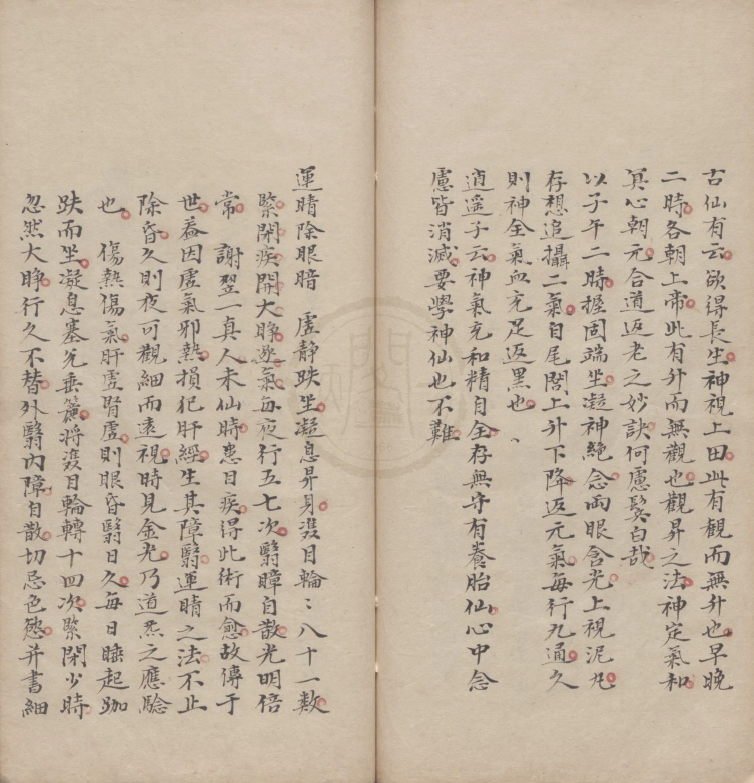 古仙有云欲得長生神視上田此有觀而無升也早晚
二時各朝上帝此有升而無觀也觀昇之法神定氣和
冥心朝元合道返老之妙訣何慮鬢白哉
以子午二時握固端坐凝神絕念兩眼含光上視泥丸
存想追攝二氣自尾閭上升下降返元氣每行九通久
則神全氣血充足返黑也
逍遥子云神氣充和精自全存無守有養胎仙心中念
慮皆消滅要學神仙也不難
運睛除眼暗 虛静趺坐凝息昇身𩀱目輪〻八十一數
緊閉疾開大睁逰氣每夜行五七次翳瞕自散光明倍
常 謝翌一真人未仙時患目疾得此術而愈故傳于
世葢因虛氣邪熱損犯肝經生其障翳運睛之法不止
除昏久則夜可觀細而遠視時見金光乃道炁之應驗
也 傷熱傷氣肝虛腎虛則眼昏翳日久每日睡起跏
趺而坐凝息塞兌垂簾將𩀱目輪轉十四次緊閉少時
忽然大睁行久不替外翳内障自散切忌色慾并書細